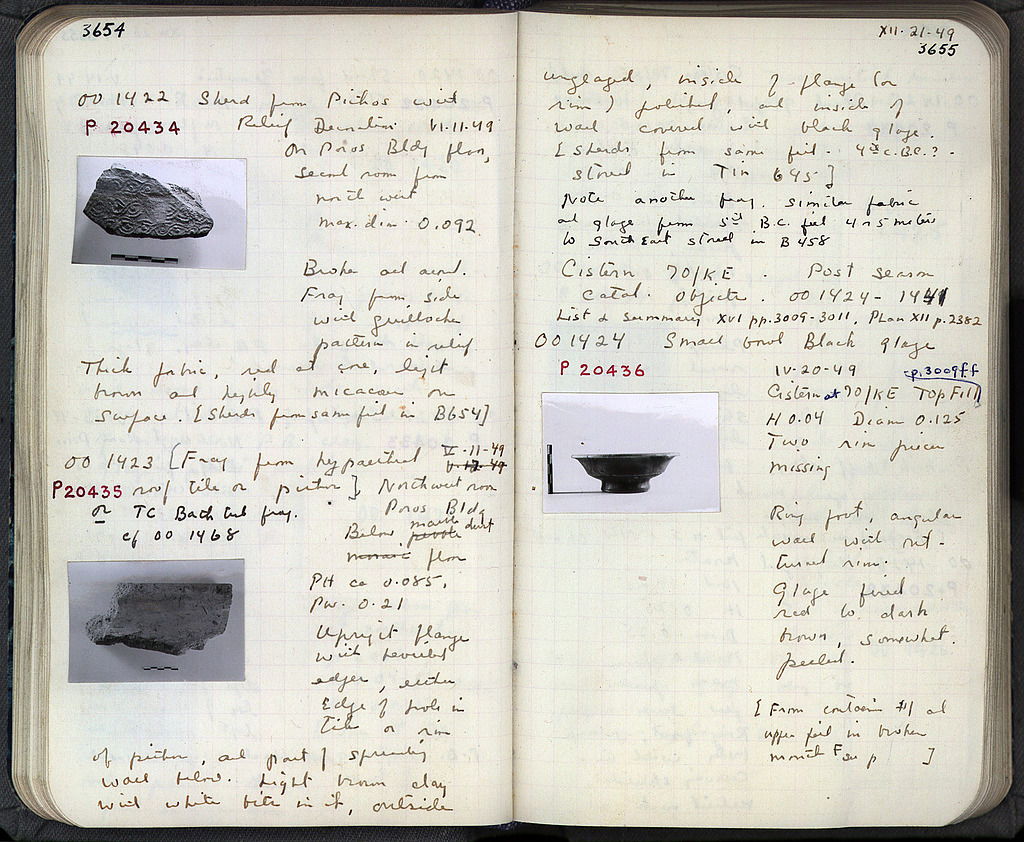 3654
OO 1422 Sherd from Pithos with
P 20434 Relief Decoration VI-11-49
On Poros Bldg floor,
second room from
north west
max. dim. 0.092
Broken all around.
Frag from side
with guilloche
pattern in relief
Thick fabric, red at core, light
brown and highly micaceous on
surface. [Sherds from same fill in B654]
OO 1423 [Frag from hypaethral V-11-49
P20435 roof tile or pithos]. Northwest room
or TC Bath tub frag. Poros Bldg
cf OO 1468 Below marble dust
mosaic floor
PH ca 0.085,
PW. 0.21
Upright flange
with beveled
edges, either
Edge of hole in
tile or rim
of pithos, and part of spreading
wall below. Light brown clay
with white bits in it, outside
XII-21-49
3655
unglazed, inside of flange (or
rim) polished, and inside of
wall covered with black glaze.
[sherds from same fill. 4th c. B.C.? -
stored in Tin 645]
Note another frag. similar fabric
and glaze from 5th B.C. fill 4 or 5 meters
to South East stored in B 458
Cistern 70/KE. Post Season
Catal. Objects. OO 1424 - 1441
List & Summary XVI pp. 3009-3011, Plan XII p. 2382
OO 1424 Small bowl Black glaze
P 20436 IV-20-49 p. 3009ff
Cistern at 70/KE Top Fill
H 0.04 Diam 0.125
Two rim pieces
missing
Ring foot, angular
wall with out-
turned rim.
Glaze fired
red to dark
brown, somewhat
peeled.
[From container #1 and
upper fill in broken
mouth ]